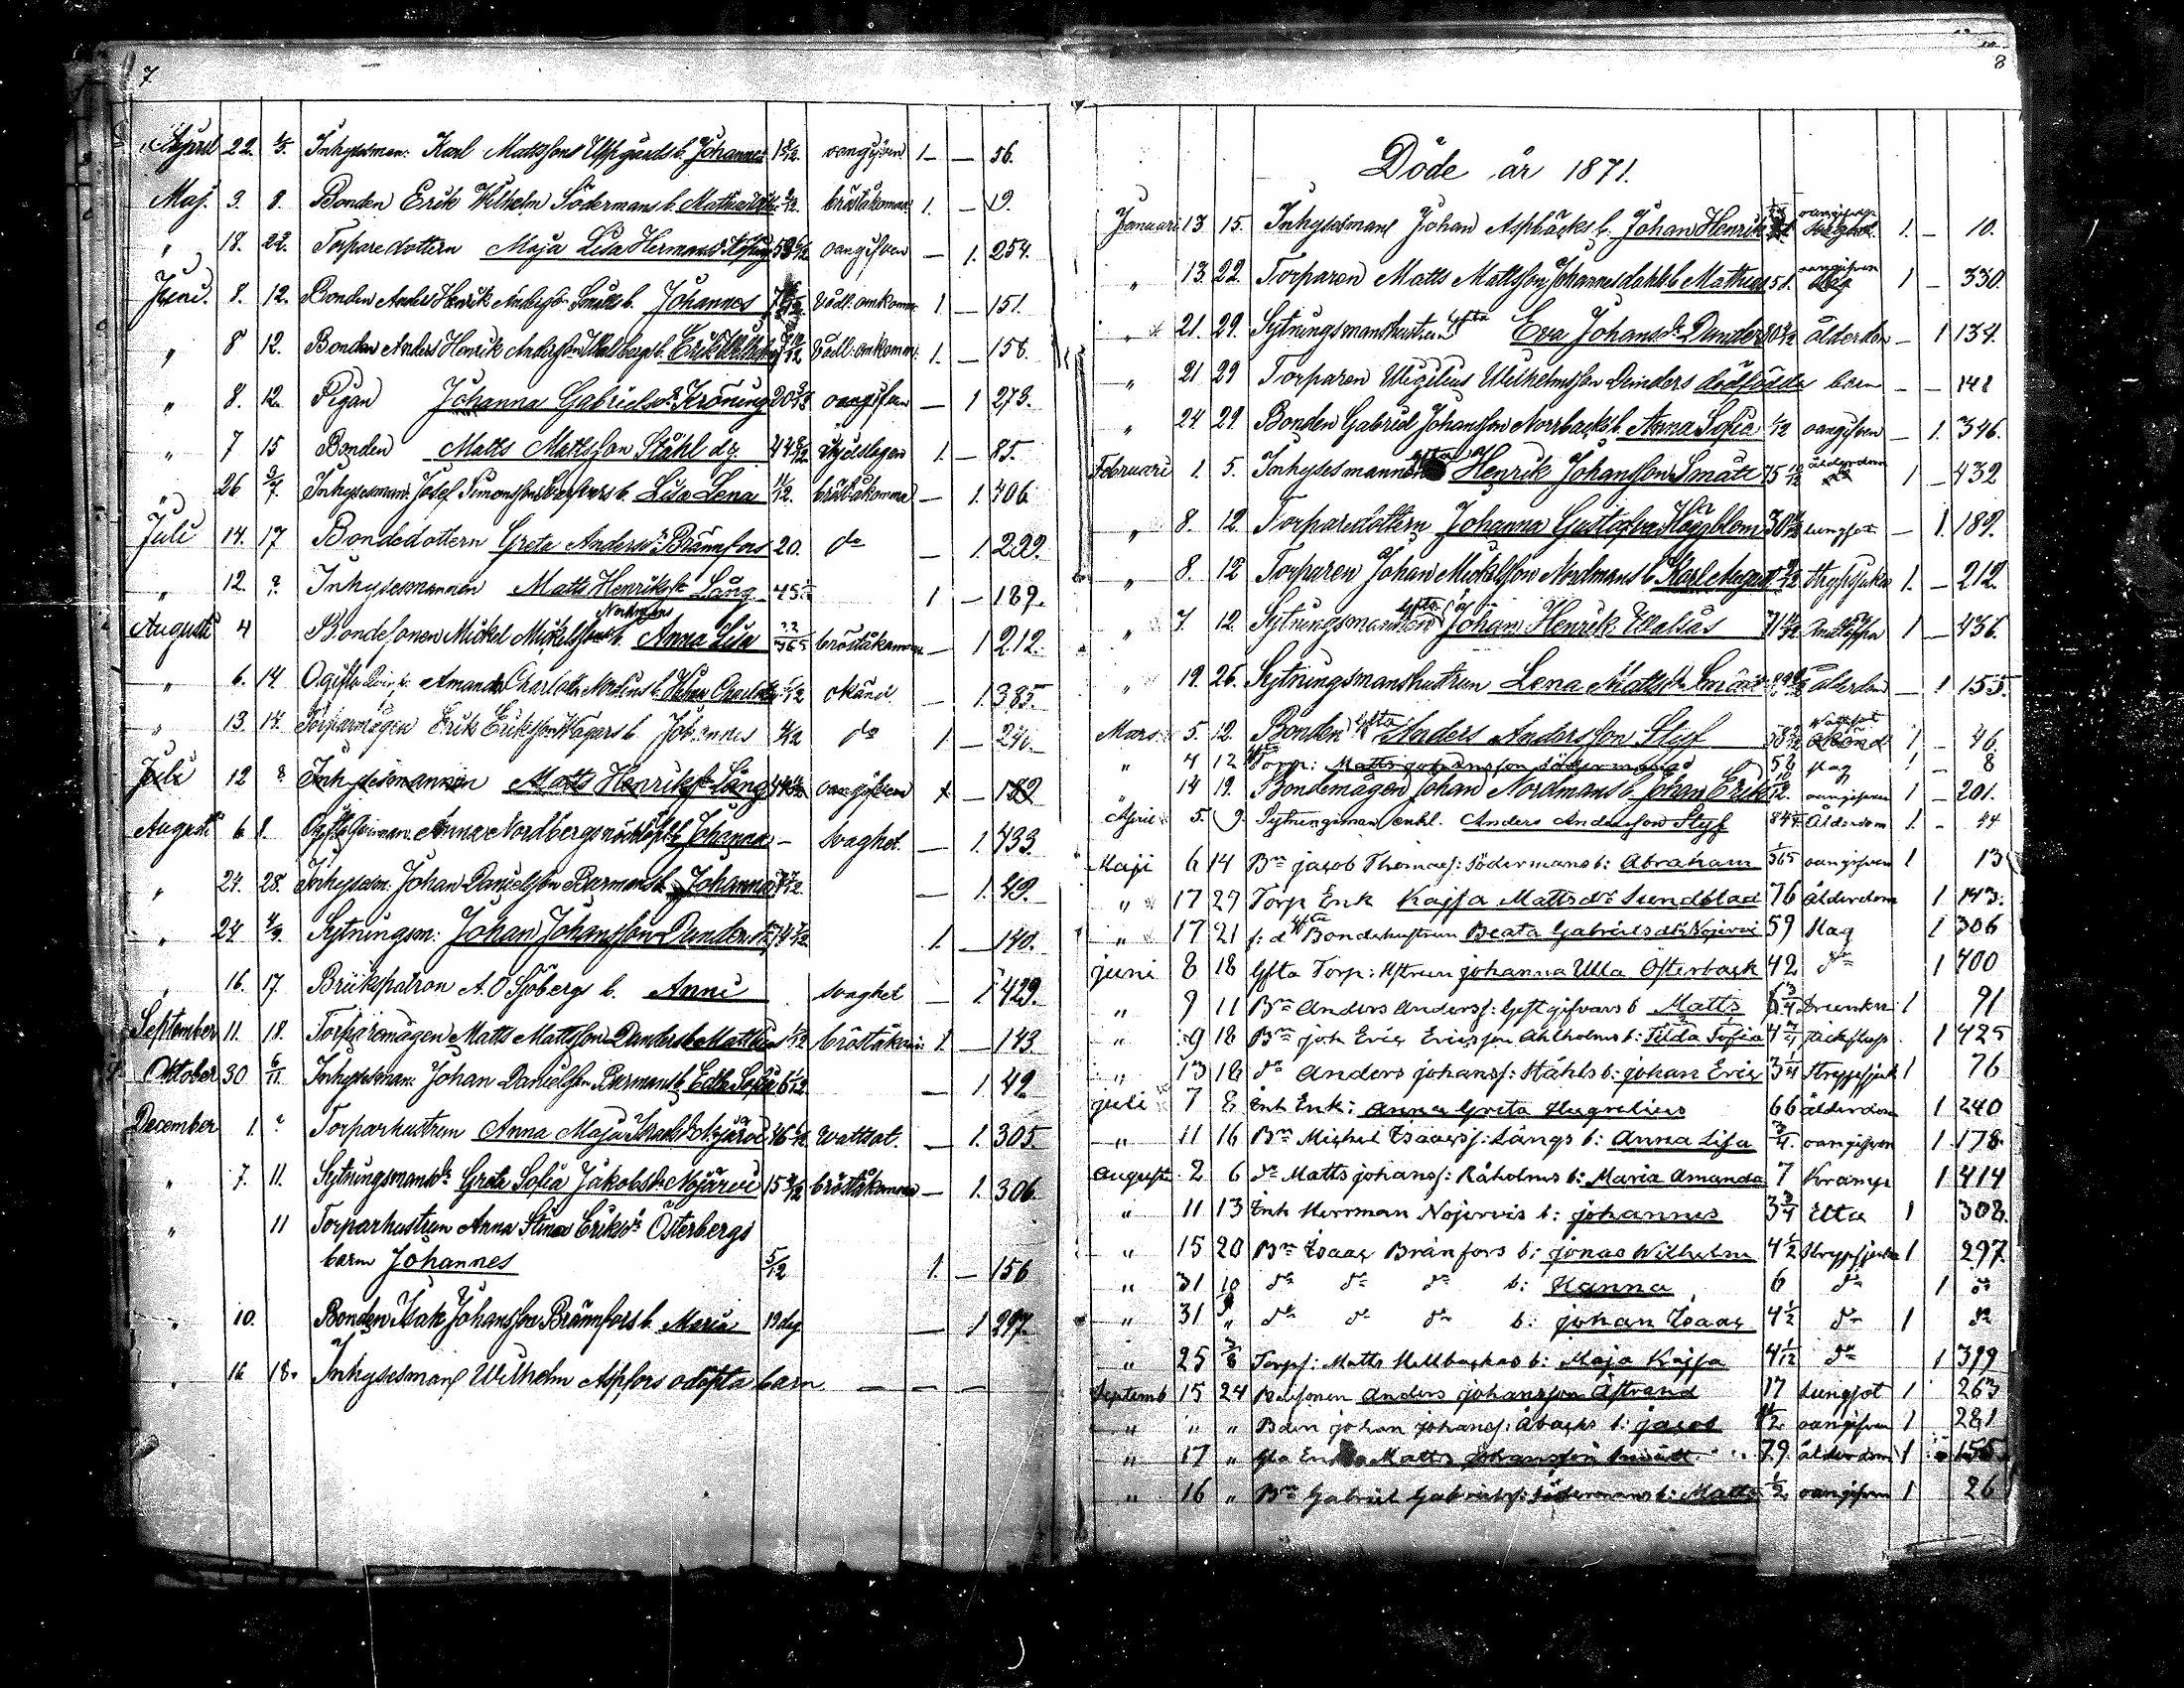 7.
April 22. 1/5. Inhysesman: Karl Mattssons Uppgårds b. Johannes oangifven 1 — 56.
Maj. 3. 8. Bonden Erik Wilhelm Södermans b. bröståkoma 1. — 19.
" 18. 22. Torparedottern Maja Lisa Hermansdr oangifven — 1. 254.
Juni. 8. 12. Bonden Anders Henrik Anderss. b. Johannes Vådl: omkomm. 1 — 151.
" 8 12. Bonden Anders Henrik Andersson b. Erik Wilhelm Vådl: omkomm: 1. — 158.
" 8. 12. Pigan Johanna Gabrielsdr Kröning oangifven — 1 273.
" 7 15 Bonden Matts Mattsson Ståhl dy. ihjelslagen 1. — 85.
" 26 3/7. Inhysesman: Josef Simonssons b. Lisa Lena 11/12. bröståkomma — 1. 406.
Juli 14. 17 Bondedottern Greta Andersdr Brännfors 20. do — 1. 299.
" 12. ? Inhysesmannen Matts Henriksson Lång 45 1 — 189.
Augusti 4 Bondesonen Mickel Mickelsson Nordmans b. Anna Lisa 22/365 bröståkomma — 1 212.
" 6. 14. Ogifta Amanda Charlotta Nordins b. Charlotta okänd — 1. 385.
" 13. 17. Torparmågen Erik Eriksson Kåpars b. Johannes do 1 — 240.
Juli 12 ? Inhysesmannen Matts Henriksson Lång oangifven 1 — 189
Augusti 6 8. Ogifta Anna Nordbergs b. Johanna — svaghet. — 1. 433.
" 24. 28. Inhysesm: Johan Danielsson Barmans b. Johanna — 1. 49.
" 24 4/9. Sytningsm: Johan Johansson Dunder 1. — 140.
" 16. 17. Brukspatron A. O Sjöberg b. Anni svaghet — 1 429.
September 11. 18. Torparemågen Matts Mattsson Dunders b. Matthias 1/12 bröståkom: 1. — 143.
Oktober 30 6/11. Inhysesman: Johan Danielsson Barmans b. Edla Sofia — 1. 49.
December 1. ? Torparhustrun Anna Maja Nojärvi Wattsot. — 1. 305.
" 7. 11. Sytningsmansdr Greta Sofia Jakobsdr Nojärvi bröståkomma — 1. 306.
" 11 Torparhustrun Anna Stina Eriksdr Österbergs
barn Johannes 5/12 1. — 156
" 10. Bonden Isak Johansson Brännfors b. Maria 19 dag — 1 297.
" 16 18. Inhysesmans Wilhelm Aspfors odöpta barn — — —
8
Döde år 1871.
Januari 13 15. Inhysesmans Johan Aspbäcks b. Johan Henrik 1. — 10.
" 13. 22. Torparen Matts Mattsson Johannesdahls b. Mathias oangifven 1 — 330.
" 21. 29. Sytningsmanshustrun Eva Johansdr Dunder ålderdom — 1 134.
" 21 29 Torparen Wigilius Wilhelmsson Dunders dödfödda barn — — 141
" 24 29. Bonden Gabriel Johansson Norrbacks b. Anna Sofia 1/12 oangifven — 1. 346.
Februari 1. 5. Inhysesmannen Henrik Johansson Smått ålderdom 1 — 432
" 8. 12. Torparedottern Johanna Gustafva Häggblom lungsot — 1. 189.
" 8. 12 Torparen Johan Mickelsson Nordmans b. Karl August strypsjuka 1. — 212.
" 7. 12. Sytningsmannen Johan Henrik 1 — 436.
" 19. 26. Sytningsmanshustrun Lena Mattsdr Smått ålderdom — 1 155.
Mars 5. 12. Bonden gifta Anders Andersson Styf Wattsot 1 — 46.
" 4 12 Torp: Matts Johansson Södermans 52 slag 1 — 8
" 14 19. Bondemågen Johan Nordmans b. Johan Erik oangifven 1 — 201.
April 5. 9. Sytningsman enkl. Anders Andersson Styf Ålderdom 1. - 44
Maji 6 14 Bn Jacob Thomass: Södermans b: Abraham oangifven 1 13
" 17 29 Torp Enk Kajsa Mattsdr Sundblad 76 ålderdom 1 143.
" 17 21 f: d Bondehustrun Beata Gabrielsdr Nojärvi 59 Slag 1 306
Juni 8 18 Gifta Torp: hstrun Johanna Ulla Österback 42 do 1 400
" 9 11 Bn Anders Anderss: Gestgifvars b Matts Drunkn 1 91
" 9 18 Bn Joh Eric Ericsson Ahlholms b: Tilda Sofia 1 425
" 13 18 do Anders Johanss: Ståhls b: Johan Eric 3 1/4 Strypsjuk 1 76
Juli 7 8 Inh Enk: Anna Greta Hagrelius 66 ålderdom 1 240
" 11 16 Bn Michel Isaacss: Långs b: Anna Lisa 3/4. oangifven 1 178
Augusti 2 6 do Matts Johanss: Råholms b: Maria Amanda 7 Kramp 1 414
" 11 13 Inh Herrman Nojervis b: Johannes 3 3/4 Elta 1 308.
" 15 20 Bn Isaac Bränfors b: Jonas Wilhelm 4 1/2 Strypsjuka 1 297.
" 31 10 do do do b: Hanna 6 do 1 do
" 31 " do do do b: Johan Isaac 4 1/2 do 1 do
" 25 Torps: Matts Hellbackas b: Maja Kajsa 4 1/12 do 1 319
Septemb 15 24 Bdesonen Anders Johansson Åstrand 17 Lungsot 1 263
" " " Bden Johan Johanss: Åbacks b: Jacob oangifven 1 281
" 17 " Matts Johansson Smått 79 ålderdom 1 155
" 16 " Bn Gabriel Gabrielss: Södermans b: Matts 1/2 oangifven 1 26